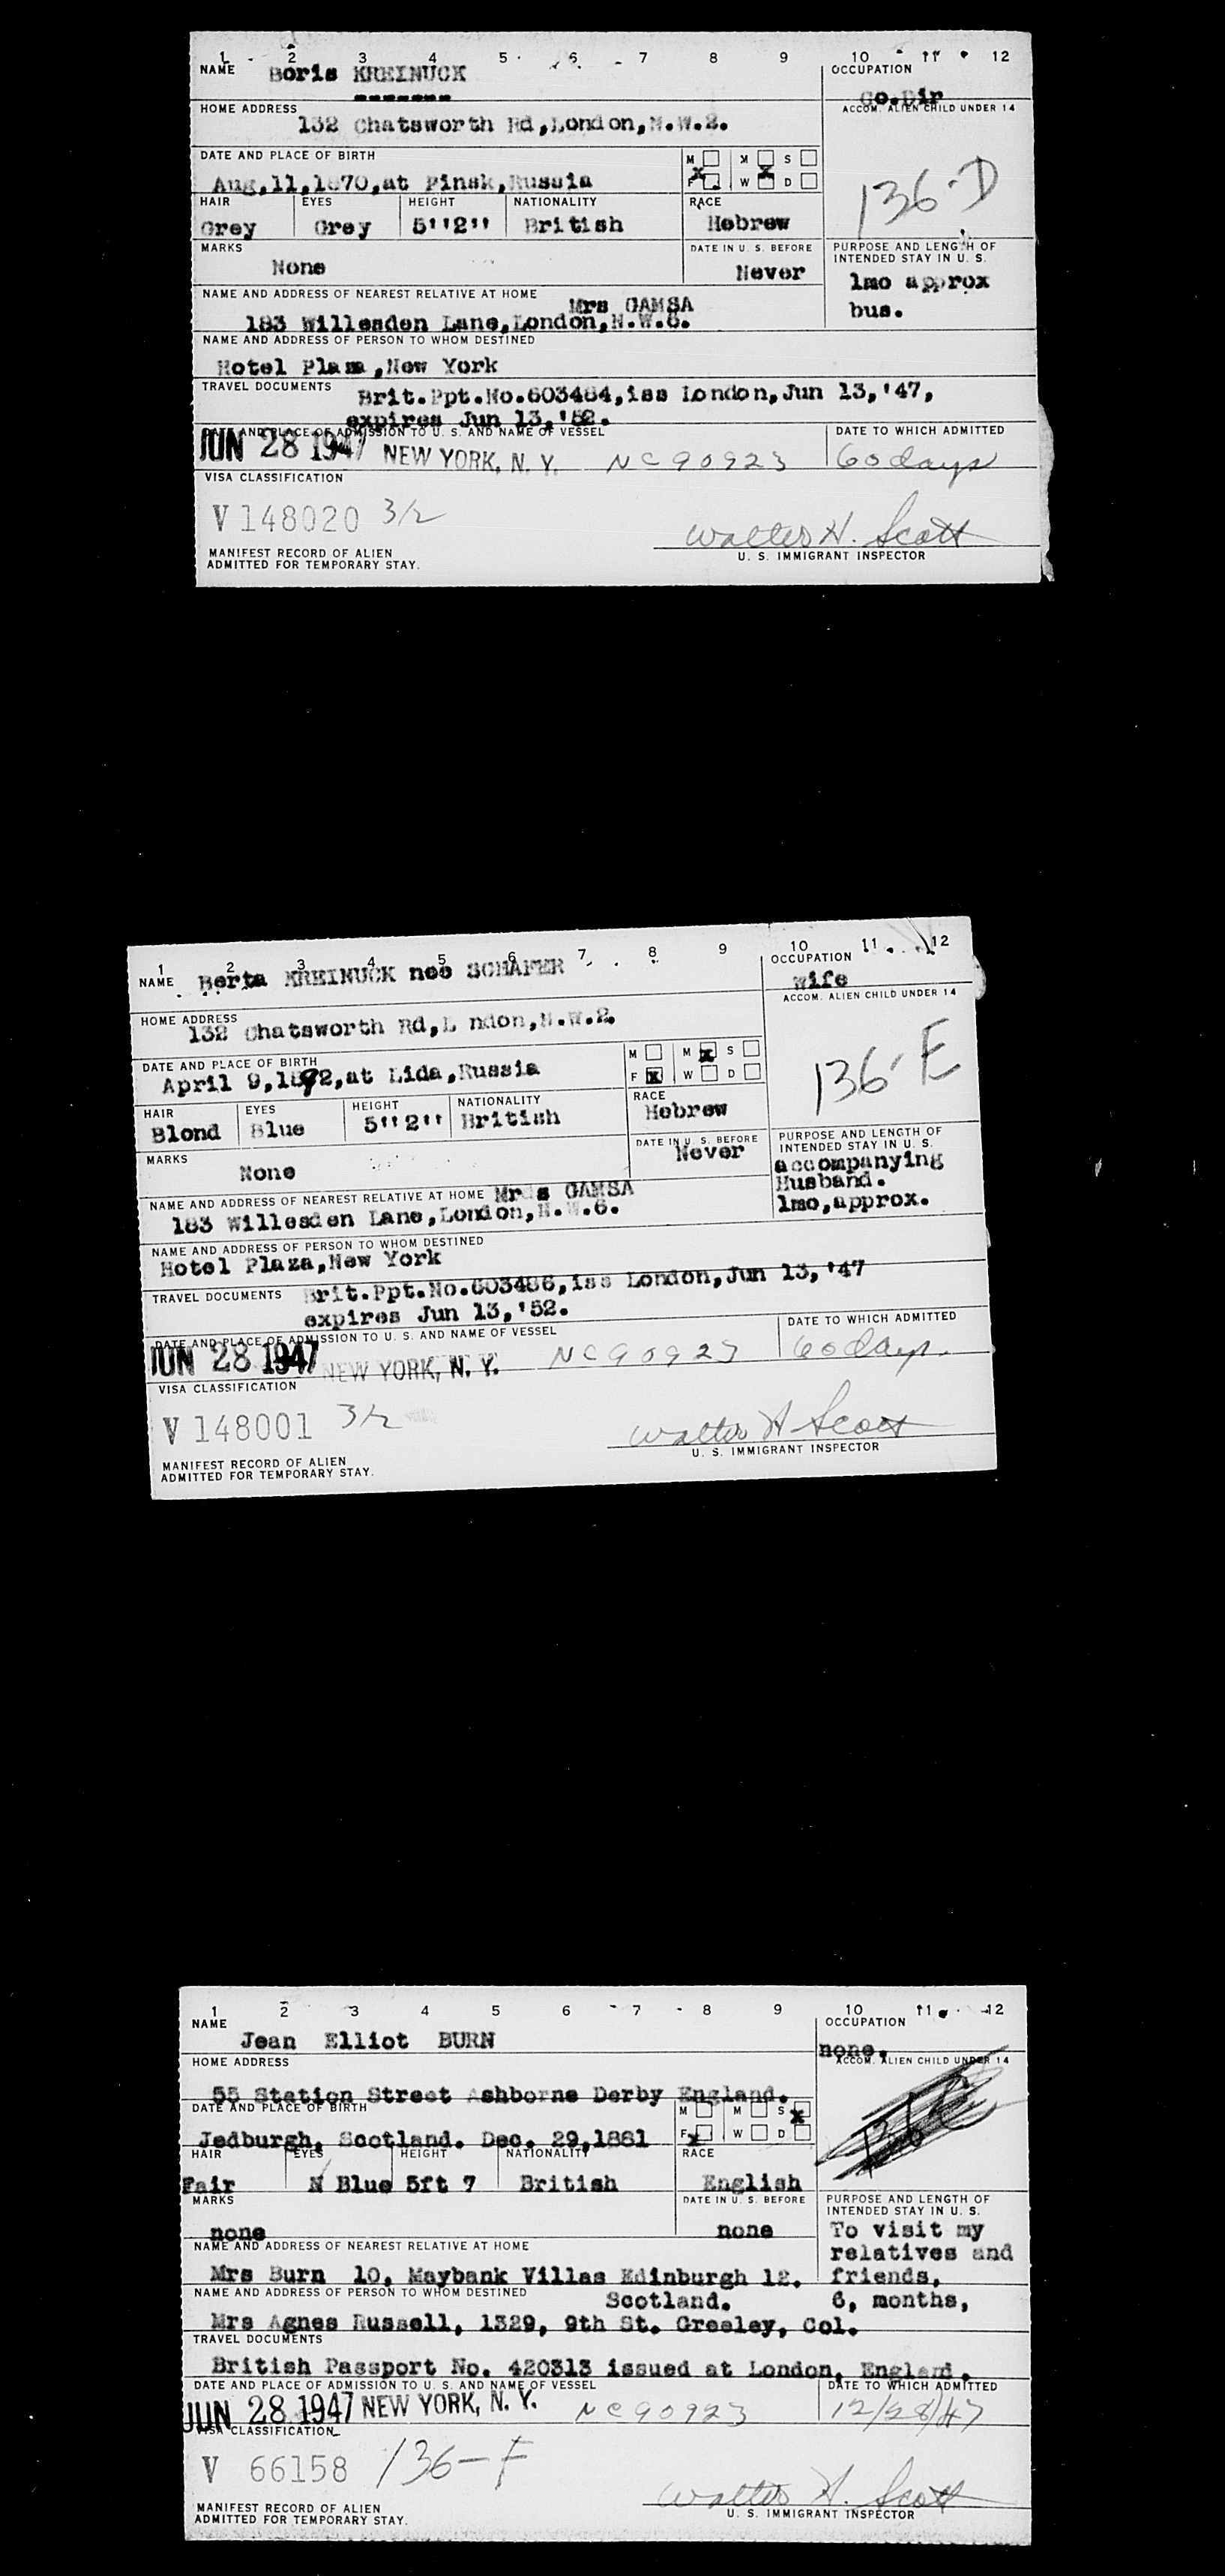 1 2 3 4 5 6 7 8 9 10 11 12
NAME Boris KREINUCK
OCCUPATION
Co.Dir
HOME ADDRESS
132 Chatsworth Rd,London,N.W.2.
ACCOM. ALIEN CHILD UNDER 14
136-D
DATE AND PLACE OF BIRTH
Aug,11,1870,at Pinsk,Russia
M M S
F W D
HAIR EYES HEIGHT NATIONALITY RACE
Grey Grey 5''2'' British Hebrew
MARKS
None
DATE IN U. S. BEFORE
Never
PURPOSE AND LENGTH OF
INTENDED STAY IN U. S.
1mo approx
bus.
NAME AND ADDRESS OF NEAREST RELATIVE AT HOME Mrs GAMSA
183 Willesden Lane,London,N.W.6.
NAME AND ADDRESS OF PERSON TO WHOM DESTINED
Hotel Plaza,New York
TRAVEL DOCUMENTS Brit.Ppt.No.603484,iss London,Jun 13,'47,
expires Jun 13,'52.
DATE AND PLACE OF ADMISSION TO U. S. AND NAME OF VESSEL
DATE TO WHICH ADMITTED
JUN 28 1947 NEW YORK, N. Y. NC90923 60 days
VISA CLASSIFICATION
V 148020 3/2
Walter H. Scott
U. S. IMMIGRANT INSPECTOR
MANIFEST RECORD OF ALIEN
ADMITTED FOR TEMPORARY STAY.
1 2 3 4 5 6 7 8 9 10 11 12
NAME Berta KREINUCK nee SCHAFER
OCCUPATION
Wife
HOME ADDRESS
132 Chatsworth Rd,L ndon,N.W.2.
ACCOM. ALIEN CHILD UNDER 14
136-E
DATE AND PLACE OF BIRTH
April 9,1892,at Lida,Russia
M M S
F W D
HAIR EYES HEIGHT NATIONALITY RACE
Blond Blue 5''2'' British Hebrew
MARKS
None
DATE IN U. S. BEFORE
Never
PURPOSE AND LENGTH OF
INTENDED STAY IN U. S.
accompanying
Husband.
1mo,approx.
NAME AND ADDRESS OF NEAREST RELATIVE AT HOME Mrs GAMSA
183 Willesden Lane,London,N.W.6.
NAME AND ADDRESS OF PERSON TO WHOM DESTINED
Hotel Plaza,New York
TRAVEL DOCUMENTS Brit.Ppt.No.603486,iss London,Jun 13,'47
expires Jun 13,'52.
DATE AND PLACE OF ADMISSION TO U. S. AND NAME OF VESSEL
DATE TO WHICH ADMITTED
JUN 28 1947 NEW YORK, N. Y. NC90923 60 days.
VISA CLASSIFICATION
V 148001 3/2
Walter H Scott
U. S. IMMIGRANT INSPECTOR
MANIFEST RECORD OF ALIEN
ADMITTED FOR TEMPORARY STAY.
1 2 3 4 5 6 7 8 9 10 11 12
NAME
Jean Elliot BURN
OCCUPATION
none.
HOME ADDRESS
55 Station Street Ashborne Derby England.
ACCOM. ALIEN CHILD UNDER 14
DATE AND PLACE OF BIRTH
Jedburgh, Scotland. Dec. 29,1881
M M S
F W D
HAIR EYES HEIGHT NATIONALITY RACE
Fair N Blue 5ft 7 British English
MARKS
none
DATE IN U. S. BEFORE
none
PURPOSE AND LENGTH OF
INTENDED STAY IN U. S.
To visit my
relatives and
friends,
6, months,
NAME AND ADDRESS OF NEAREST RELATIVE AT HOME
Mrs Burn 10, Maybank Villas Edinburgh 12.
Scotland.
NAME AND ADDRESS OF PERSON TO WHOM DESTINED
Mrs Agnes Russell, 1329, 9th St. Greeley, Col.
TRAVEL DOCUMENTS
British Passport No. 420313 issued at London, England.
DATE AND PLACE OF ADMISSION TO U. S. AND NAME OF VESSEL
DATE TO WHICH ADMITTED
JUN 28 1947 NEW YORK, N. Y. NC90923 12/28/47
VISA CLASSIFICATION
V 66158 136-F
Walter H. Scott
U. S. IMMIGRANT INSPECTOR
MANIFEST RECORD OF ALIEN
ADMITTED FOR TEMPORARY STAY.